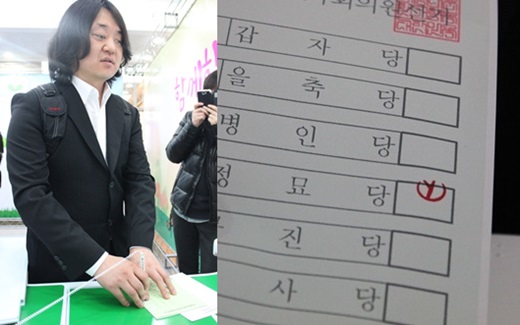 함께
국회의원선거
갑 자 당
을 축 당
병 인 당
정 묘 당
진 당
사 당